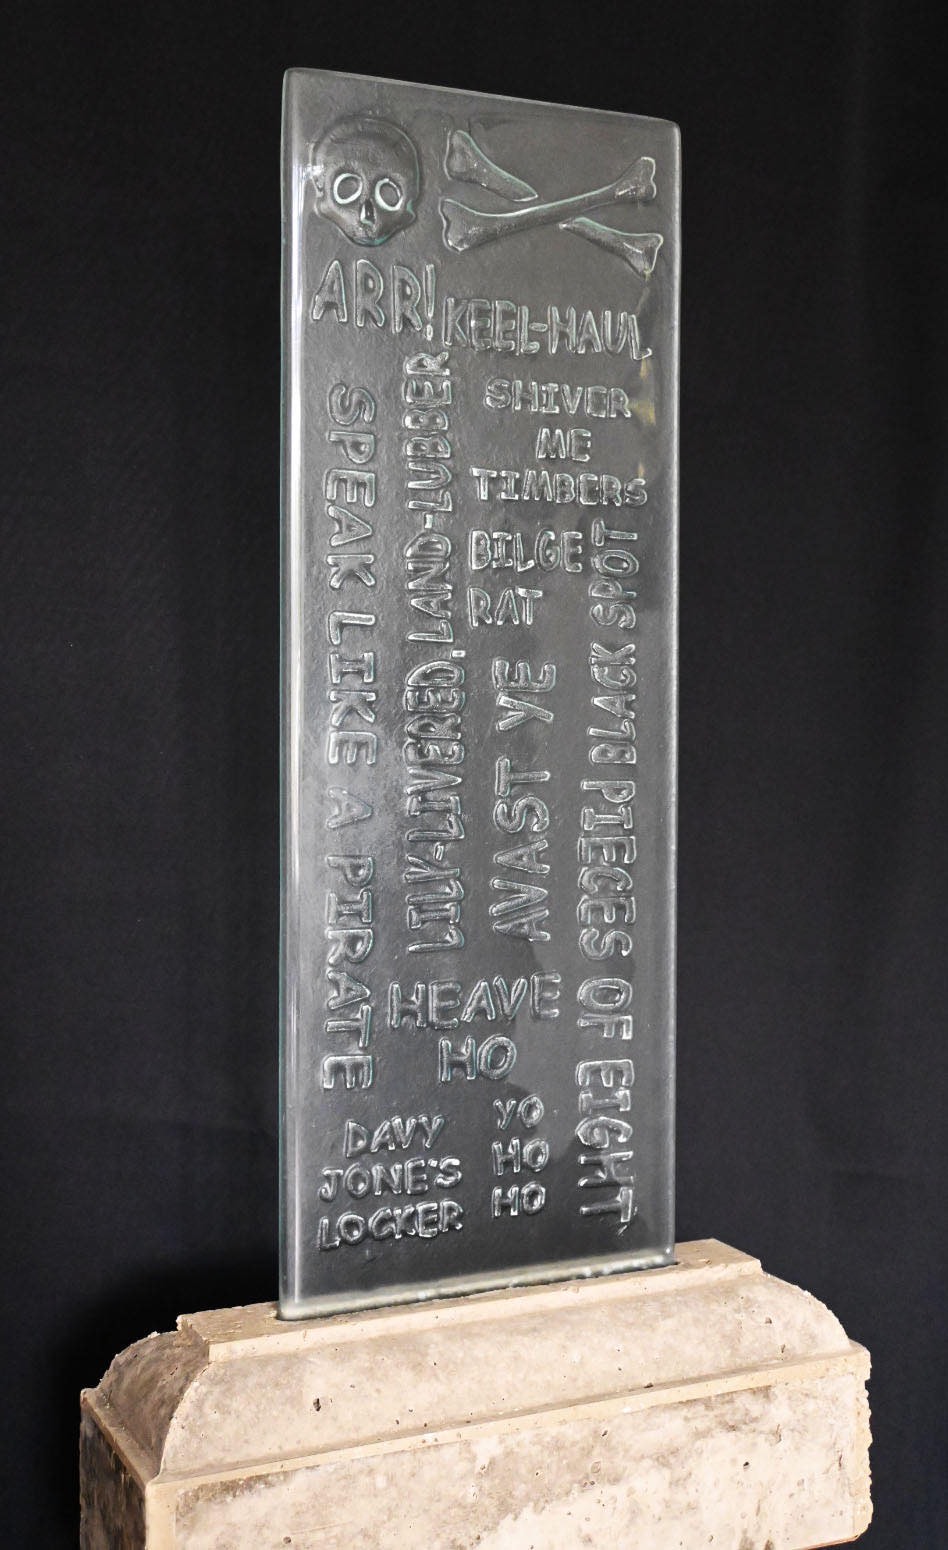 ARR!
KEEL-HAUL
SPEAK LIKE A PIRATE
LILY-LIVERED, LAND-LUBBER
SHIVER
ME
TIMBERS
BILGE
RAT
AVAST YE
BLACK SPOT
PIECES OF EIGHT
HEAVE
HO
DAVY
JONE'S
LOCKER
YO
HO
HO